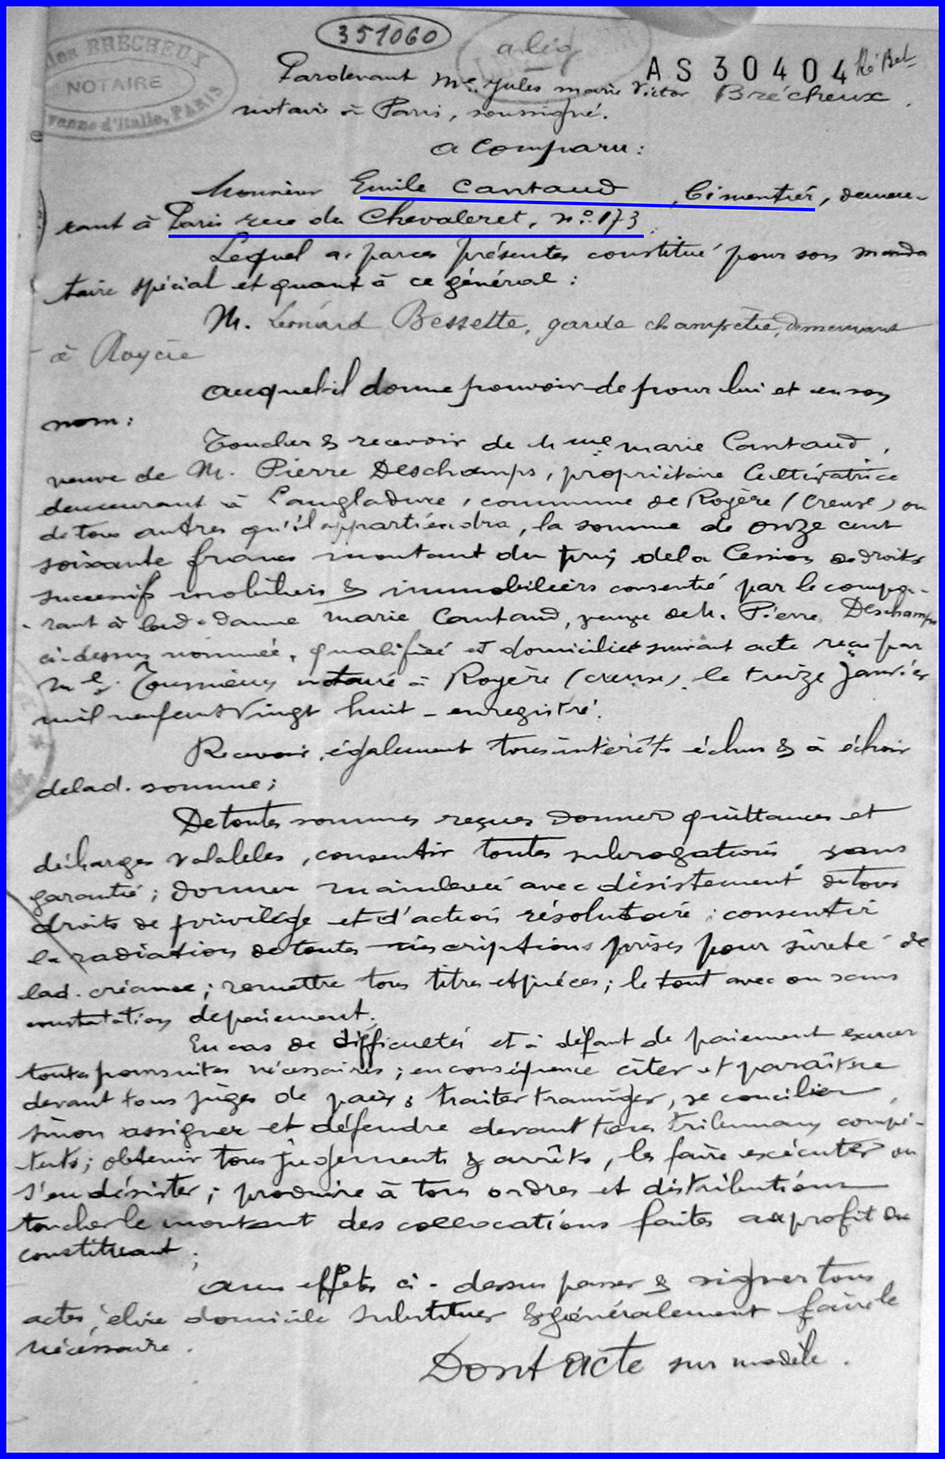 351060
BRECHEUX
NOTAIRE
d'Italie, PARIS
AS 30404
Pardevant Me Jules marie Victor Brécheux
notaire à Paris, soussigné.
a Comparu:
Monsieur Emile Cantaud, Cimentier, demeu-
rant à Paris rue du Chevaleret, no. 173.
Lequel a parces présentes constitué pour son manda
taire spécial et quant à ce général :
M. Léonard Bessette, garde champêtre, demeurant
à Royère
auquel il donne pouvoir de pour lui et en son
nom :
Toucher & recevoir de Mme marie Cantaud,
veuve de M. Pierre Deschamps, propriétaire Cultivatrice
demeurant à Langladure, commune de Royère (Creuse) ou
de tous autres qu'il appartiendra, la somme de onze cent
soixante francs montant du prix de la Cession de droits
successifs mobiliers & immobiliers consentie par le compa-
rant à lad. dame marie Cantaud, veuve de M. Pierre Deschamps
ci-dessus nommée, qualifiée et domiciliée suivant acte reçu par
Me notaire à Royère (creuse), le treize Janvier
mil neuf cent vingt huit - enregistré.
Recevoir également tous intérêts échus & à échoir
de lad. somme;
De toutes sommes reçues donner quittances et
décharges valables, consentir toutes subrogations, sans
garantie; donner mainlevée avec désistement de tous
droits de privilège et d'action résolutoire; consentir
la radiation de toutes inscriptions prises pour sûreté de
lad. créance; remettre tous titres et pièces; le tout avec ou sans
constatation de paiement.
En cas de difficultés et à défaut de paiement exercer
toutes poursuites nécessaires; en conséquence citer et paraître
devant tous juges de paix; traiter, transiger, se concilier,
sinon assigner et défendre devant tous tribunaux compé-
tents; obtenir tous jugements & arrêts, les faire exécuter ou
s'en désister; produire à tous ordres et distributions
toucher le montant des collocations faites au profit du
constituant;
aux effets ci-dessus passer & signer tous
actes, élire domicile substituer & généralement faire le
nécessaire.
Dont acte sur modèle.